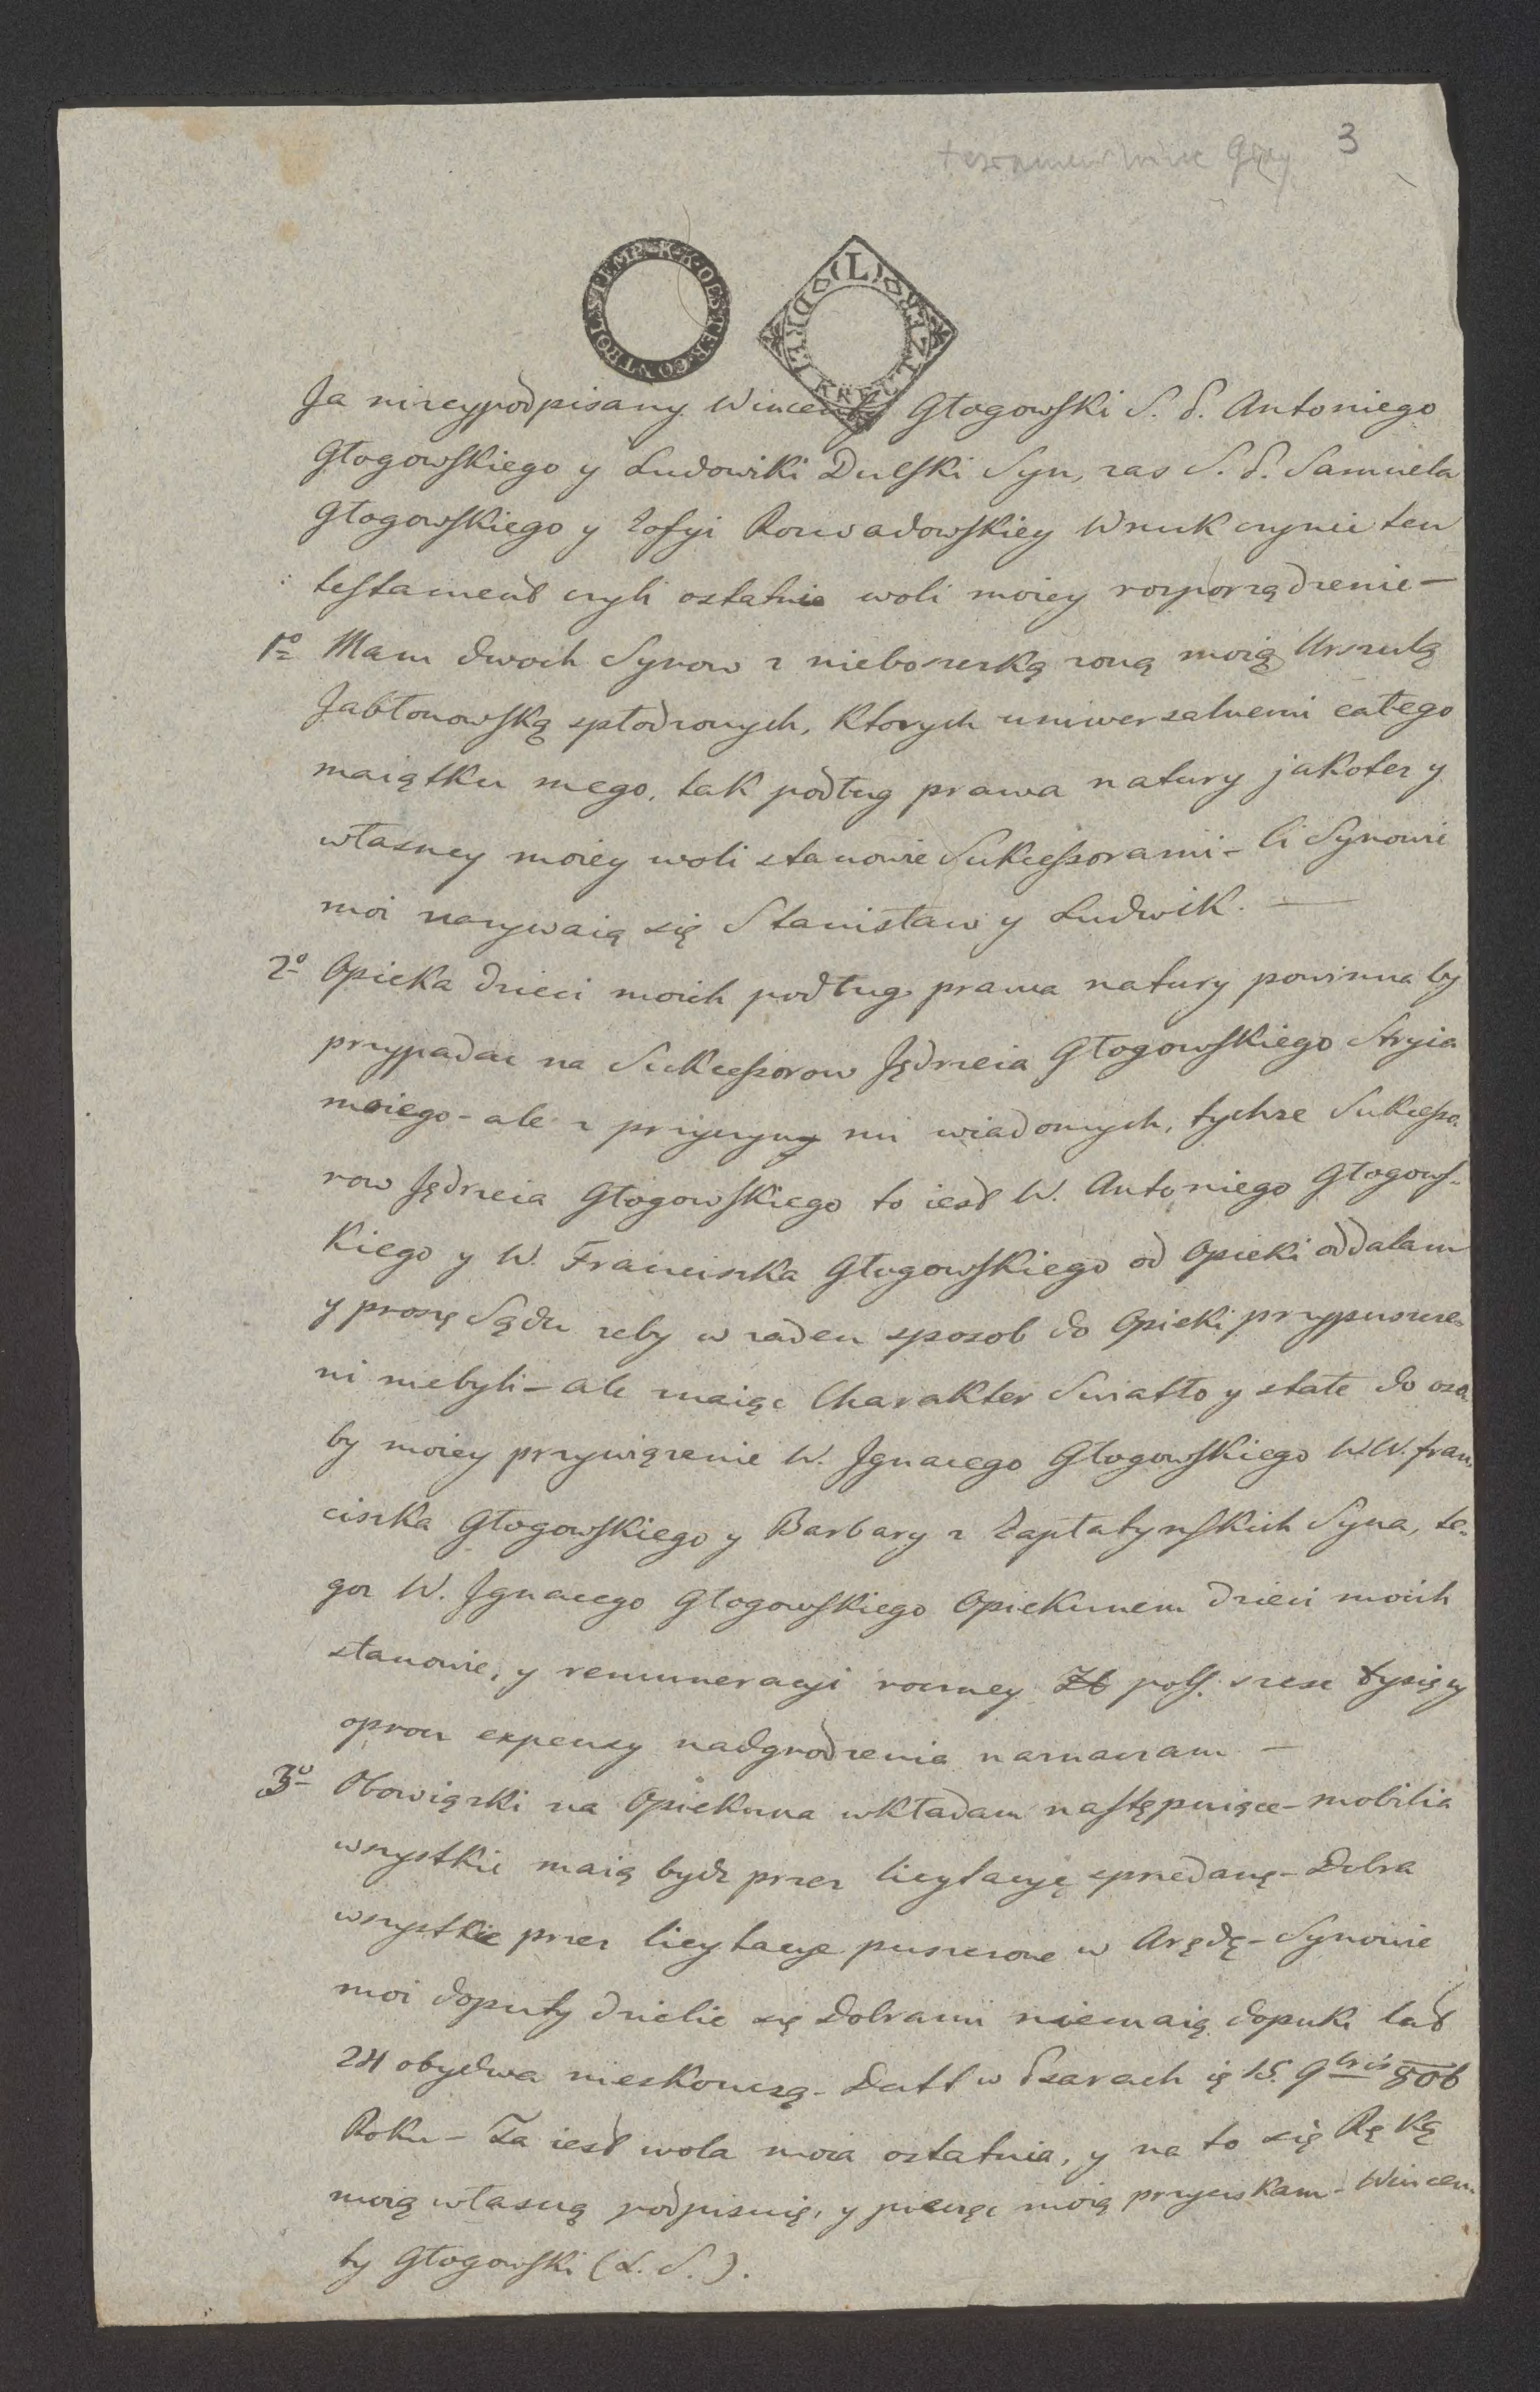 3
K·K·OESTER·CONTROL·STEMP
(L) DREI KR
Ja niżeypodpisany Wincenty Głogowski S. P. Antoniego
Głogowskiego y Ludowiki Dulski Syn, zas S. P. Samuela
Głogowskiego y Zofyi Rozwadowskiey Wnuk czynie ten
testament czyli ostatnie woli moiey rozporządzenie —
1º Mam dwoch Synow z nieboszczką zoną moią Urszulą
Jabłonowską spłodzonych, Ktorych uniwersalnemi całego
maiątku mego, tak podług prawa natury jakotez y
własney moiey woli stanowie Sukcessorami - Ci Synowie
moi nazywaią się Stanisław y Ludwik. —
2º Opieka dzieci moich podług prawa natury powinna by
przypadac na Sukcessorow Jędrzeia Głogowskiego Stryia
moiego - ale z przyczyny mi wiadomych, tychze Sukcesso-
row Jędrzeia Głogowskiego to iest W. Antoniego Głogows-
Kiego y W. Franciszka Głogowskiego od Opieki oddalam
y proszę Sądu zeby w zaden sposob do Opieki przypuszcze-
ni niebyli - ale znaiąc Charakter Swiatło y stałe do oso
by moiey przywiązenie W. Jgnacego Głogowskiego W.W. Fran-
ciszka Głogowskiego y Barbary z Zapłatynskich Syna, te-
goz W. Jgnacego Głogowskiego Opiekunem dzieci moich
stanowie, y remuneracyi roczney Zł pols. szesc tysięcy
oprocz expensy nadgrodzenia naznaczam —
3º Obowiązki na Opiekuna wkładam następuiące - mobilia
wszystkie maią bydz przez licytacyę sprzedanę - Dobra
wszystkie przez licytacye puszczone w Arędę - Synowie
moi doputy dzielic się Dobrami niemaią dopuki lat
24 obydwa nieskonczą - Datt w Psarach ię 15. 9bris 806
Roku - Ta iest wola moia ostatnia, y na to się Ręką
moią własną podpisuię, y pieczęc moią przyciskam - Wincen-
ty Głogowski (L. S.).